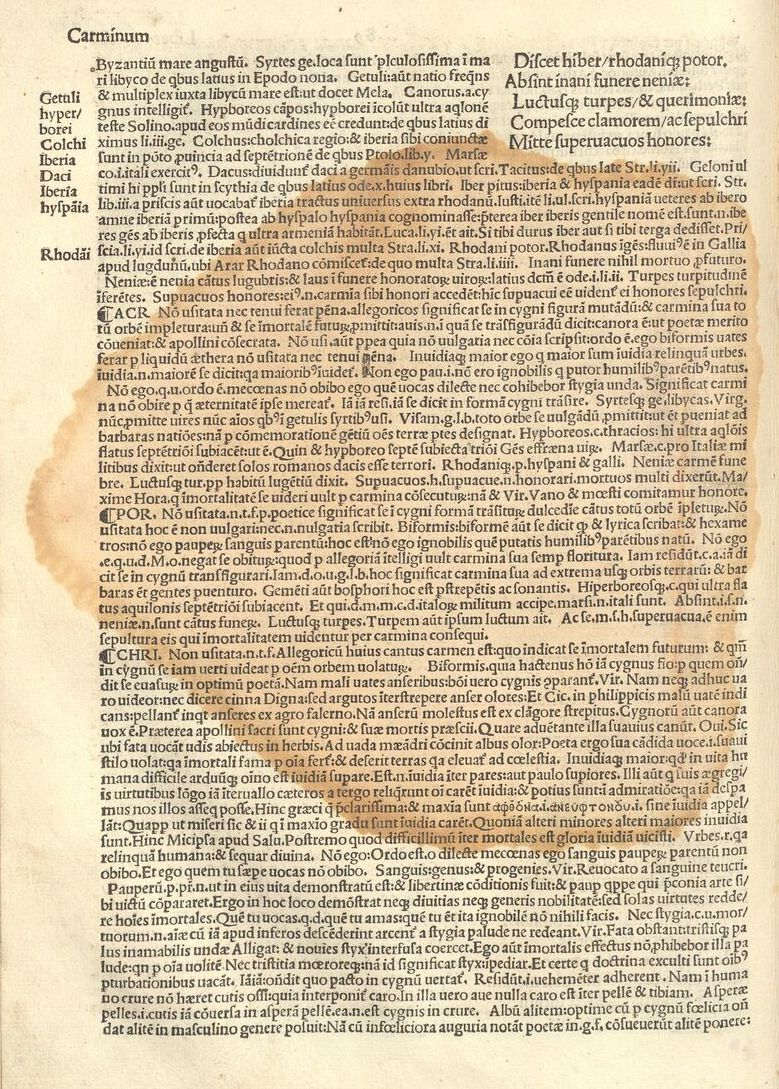 Carminum
Discet hiber/rhodaniqȝ potor.
Absint inani funere neniæ:
Luctusqȝ turpes/& querimoniæ:
Compesce clamorem/ac sepulchri
Mitte superuacuos honores:
Getuli
hyper/
borei
Colchi
Iberia
Daci
Iberia
hyspãia
Rhodãi
Byzantiũ mare angustũ. Syrtes ge.loca sunt ꝑiculosissima ĩ ma
ri libyco de qbus latius in Epodo nona. Getuli:aũt natio freqns
& multiplex iuxta libycũ mare est:ut docet Mela. Canorus.a.cy
gnus intelligit᷑. Hyperboreos cãpos:hyporei ĩcolũt ultra aqlonẽ
teste Solino.apud eos mũdi cardines eẽ credunt:de qbus latius di
ximus li.iii.ge. Colchus:cholchica regio:& iberia sibi coniunctæ
sunt in põto ꝓuincia ad septẽtrionẽ de qbus Ptolo.lib.y. Marsæ
co.i.itali exercitꝰ. Dacus:diuidunt᷑ daci a germãis danubio.ut scri.Tacitus:de qbus late Str.li.vii. Geloni ul
timi hi ppli sunt in scythia de qbus latius ode.x.huius libri. Iber pitus:iberia & hyspania eadẽ dr̃:ut scri. Str.
lib.iii.a priscis aũt uocabat᷑ iberia tractus uniuersus extra rhodanũ.Iusti.itẽ li.ul.scri.hyspaniã ueteres ab ibero
amne iberiã primũ:postea ab hyspalo hyspania cognominasse:ꝓterea iber iberis gentile nomẽ est.sunt.n.ibe
res gẽs ab iberis ꝓfecta q ultra armeniã habitãt.Luca.li.yi.ẽt ait.Si tibi durus iber aut si tibi terga dedisset.Pri/
scia.li.yi.id scri.de iberia aũt iũcta colchis multa Stra.li.xi. Rhodani potor.Rhodanus igẽs:fluuiꝰẽ in Gallia
apud lugdunũ.ubi Arar Rhodano cõmiscet᷑:de quo multa Stra.li.iiii. Inani funere nihil mortuo ꝓfuturo.
Neniæ:ẽ nenia cãtus lugubris:& laus ĩ funere honoratoꝝ uiroꝝ:latius dcm̃ ẽ ode.i.li.ii. Turpes turpitudinẽ
ĩferẽtes. Supuacuos honores:eiꝰ.n.carmia sibi honori accedẽt:hĩc supuacui eẽ uident᷑ ei honores sepulchri.
¶ACR. Nõ usitata nec tenui ferar pẽna.allegoricos significat se in cygni figurã mutãdũ:& carmina sua to
tũ orbẽ impletura:uñ & se ĩmortalẽ futuꝝ,ꝓmittit:auis.n.ĩ quã se trãsfigurãdũ dicit:canora ẽ:ut poetæ merito
cõueniat:& apollini cõsecrata. Nõ usi.aũt ꝓpea quia nõ uulgaria nec cõia scripsit:ordo ẽ.ego biformis uates
ferar p liquidũ æthera nõ usitata nec tenui pẽna. Inuidiaqȝ maior ego q maior sum iuidia relinquã urbes.
ĩuidia.n.maiorẽ se dicit:qa maioribꝰiuidet᷑. Non ego pau.i.nõ ero ignobilis q putor humilibꝰparẽtibꝰnatus.
Nõ ego.q.u.ordo ẽ.mecœnas nõ obibo ego quẽ uocas dilecte nec cohibebor stygia unda. Significat carmi
na nõ obire p q æternitatẽ ipse mereat᷑. Iã iã resi.iã se dicit in formã cygni trãsire. Syrtesqȝ ge.libycas.Virg.
nũc,ꝓmitte uires nũc aĩos qbꝰĩ getulis syrtibꝰusi. Visam.g.l.b.toto orbe se uulgãdũ ,ꝓmittit:ut ẽt pueniat ad
barbaras natiões:nã p cõmemorationẽ gẽtiũ oẽs terræ ptes designat. Hyperboreos.c.thracios:hi ultra aqlõis
flatus septẽtriõi subiacẽt:ut ẽ.Quin & hyperboreo septẽ subiecta triõi Gẽs effræna uiꝝ. Marsæ.c.pro Italiæ mi
litibus dixit:ut oñderet solos romanos dacis esse terrori. Rhodaniqȝ.p.hyspani & galli. Neniæ carmẽ fune
bre. Luctusqȝ tur.pp habitũ lugẽtiũ dixit. Supuacuos.h.supuacue.n.honorari.mortuos multi dixerũt.Ma/
xime Hora.q ĩmortalitatẽ se uideri uult p carmina cõsecutuꝝ:nã & Vir.Vano & mœsti comitamur honore.
¶POR. Nõ usitata.n.t.f.p.poetice significat se ĩ cygni formã trãsituꝝ dulcedĩe cãtus totũ orbẽ ĩpletuꝝ.Nõ
usitata hoc ẽ non uulgari:nec.n.nulgaria scribit. Biformis:biformẽ aũt se dicit qꝫ & lyrica scribat:& hexame
tros:nõ ego paupeꝝ sanguis parentũ:hoc est᷑nõ ego ignobilis quẽ putatis humilibꝰparẽtibus natũ. Nõ ego
.e.q.u.d.M.o.negat se obituꝝ:quod p allegoriã ĩtelligi uult carmina sua semp floritura. Iam residũt.c.a.iã di
cit se in cygnũ transfigurari.Iam.d.o.u.g.l.b.hoc significat carmina sua ad extrema usqȝ orbis terrarũ: & bar
baras ẽt gentes puenturo. Gemẽti aũt bosphori hoc est pstrepẽtis ac sonantis. Hiperboreosqȝ.c.qui ultra fla
tus aquilonis septẽtriõi subiacent. Et qui.d.m.m.c.d.italoꝝ militum accipe.marsi.n.itali sunt. Absint.i.f.n.
neniæ.n.sunt cãtus funeꝝ. Luctusqȝ turpes.Turpem aũt ipsum luctum ait. Ac se.m.s.h.superuacua.ẽ enim
sepultura eis qui ĩmortalitatem uidentur per carmina consequi.
¶CHRI. Non usitata.n.t.f.Allegoricũ huius cantus carmen est:quo indicat se ĩmortalem futurum: & qm̃
in cygnũ se iam uerti uideat p oẽm orbem uolatuꝝ. Biformis.quia hactenus hõ iã cygnus fio:p quem oñ/
dit se euasuꝝ in optimũ poetã.Nam mali uates anseribus:bõi uero cygnis ꝯparant᷑.Vir. Nam neqȝ adhuc ua
ro uideor:nec dicere cinna Digna:sed argutos ĩterstrepere anser olores:Et Cic. in philippicis malũ uatẽ indi
cans:pellant᷑ inqt anseres ex agro falerno.Nã anserũ molestus est ex clãgore strepitus. Cygnorũ aũt canora
uox ẽ.Præterea apollini sacri sunt cygni:& suæ mortis præscii.Quare aduẽtante illa suauius canũt. Oui.Sic
ubi fata uocãt udis abiectus in herbis.Ad uada mæãdri cõcinit albus olor:Poeta ergo sua cãdida uoce.i.suaui
stilo uolat:qa ĩmortali fama p oĩa fert᷑:& deserit terras qa eleuat᷑ ad cœlestia. Inuidiaqȝ maior:qd᷑ in uita hu
mana difficile arduũqȝ oĩno est ĩuidiã supare.Est.n.ĩuidia ĩter pares:aut paulo supiores. Illi aũt q suis ægregi/
is uirtutibus lõgo iã ĩteruallo cæteros a tergo reliqrunt oĩ carẽt ĩuidia:& potius sunt:ĩ admiratiõe:qa iã despa
mus nos illos asseq posse.Hinc græci q ꝓclarissima:& maxĩa sunt αφθονα.i.ανεϛφτονου.i. sine ĩuidia appel/
lãt:Quapp ut miseri sic & ii q ĩ maxio gradu sunt ĩuidia carẽt.Quoniã alteri minores alteri maiores inuidia
sunt.Hinc Micipsa apud Salu.Postremo quod difficillimũ ĩter mortales est gloria ĩuidiã uicisti. Vrbes.r.qa
relinquã humana:& sequar diuina. Nõ ego:Ordo est.o dilecte mecœnas ego sanguis paupeꝝ parentũ non
obibo.Et ego quem tu sæpe uocas nõ obibo. Sanguis:genus:& progenies.Vir.Reuocato a sanguine teucri.
Pauperũ.p.pr̃.n.ut in eius uita demonstratũ est:& libertinæ cõditionis fuit:& paup qppe qui ꝓconia arte si/
bi uictũ cõpararet.Ergo in hoc loco demõstrat neqȝ diuitias neqȝ generis nobilitatẽ:sed solas uirtutes redde/
re hoĩes ĩmortales.Quẽ tu uocas.q.d.quẽ tu amas:quẽ tu ẽt ita ignobilẽ nõ nihili facis. Nec stygia.c.u.mor/
tuorum.n.aĩæ cũ iã apud inferos descẽderint arcent᷑ a stygia palude ne redeant.Vir.Fata obstant:tristisqȝ pa
lus inamabilis undæ Alligat: & nouies styx interfusa coercet.Ego aũt ĩmortalis effectus nõ,ꝓhibebor illa pa
lude:qn p oĩa uolitẽ.Nec tristitia mœroreqȝ:nã id significat styx:ĩpediar.Et certe q doctrina exculti sunt oĩbꝰ
pturbationibus uacãt. Iãiã:oñdit quo pacto in cygnũ uertat᷑. Residũt.i.uehemẽter adherent . Nam ĩ huma
no crure nõ hæret cutis ossi:quia interponit᷑ caro.In illa uero aue nulla caro est ĩter pellẽ & tibiam. Asperæ
pelles.i.cutis iã cõuersa in asperã pellẽ.ea.n.est cygnis in crure. Albũ alitem:optime cũ p cygnũ fœlicia oñ
dat alitẽ in masculino genere posuit:Nã cũ infœliciora auguria notãt poetæ in.g.f.cõsueuerũt alitẽ ponere: